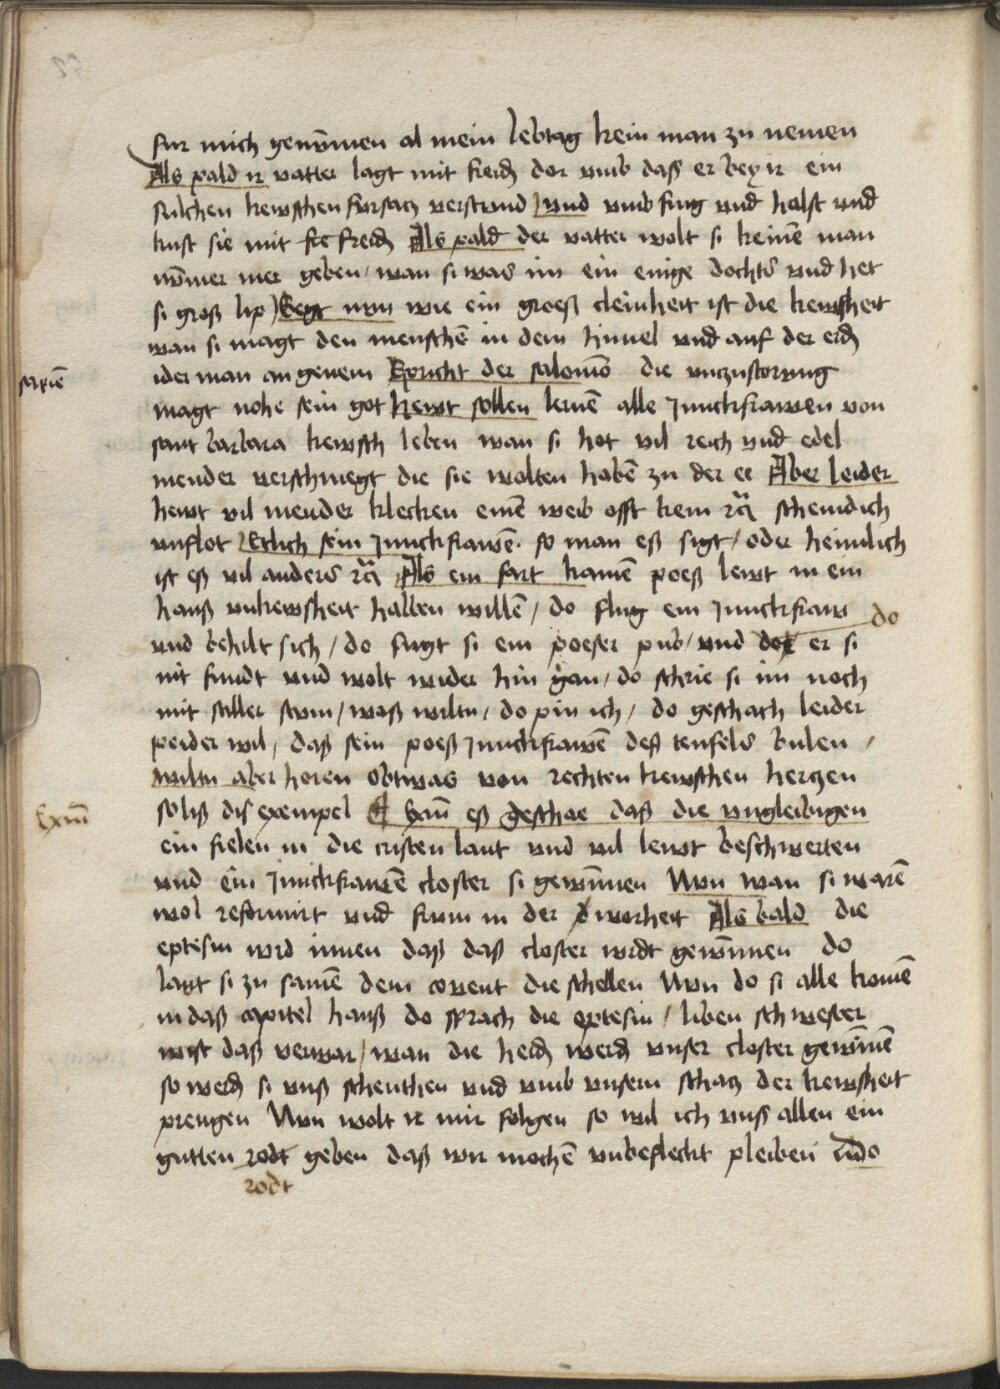 fur mich genūmen al mein lebtag kein man zu nemen
Als pald ir vatter sagt mit freidẜ dor vmb daß er bey ir ein
sulchen kewschen fursacz verstund / vnd vmb fing vnd halst vnd
kust sie mit freidẜ Als pald der vatter wolt si keinē man
nūmer mer geben / wan si was im ein enige dochtˢ vnd het
si groß lip / Seyt nun wie ein groeß cleinheit ist die kewsheit
wan si magt den menschē in dem himel vnd auf der erdẜ
ider man an genem Spricht der salomō die vnczustorung
sapiē
magt nohe sein got Hewt sollen lernē alle Junckfrawen von
sant barbara kewsch leben wan si hot vil reich vnd edel
mender verschmegt die sie wolten habē zu der ee Aber leider
hewt vil mender klecken einē weib offt kein schentlich
vnflot / Etlich sein Junckfrawē. so man eß sigt / oder heimlich
ist eß vil anders Als ein fart kamē poeß lewt in ein
hauß vnkewsheit halben willē / do flug ein Junckfraw
vnd behilt sich / do sugt si ein poeser pub / vnd do er si
nit fundt vnd wolt wider hin gan / do schrie si im noch
mit stiller stim / waß wiltu / do pin ich / do geschach leider
peider wil / daß sein poeß Junckfrawē deß teufels bulen /
wiltu aber horen obtwas von rechten kewschen herczen
so liß diß exempel ¶ eß geschae daß die vngleibigen
ein fielen in die cristen lant vnd vil lewt beschwerten
vnd ein Junckfrawē closter si gewūnnen Nun wan si warē
wol reformirt vnd frum in der worheit Als bald die
eptesin wrd innen daß daß closter wrdt gewūnnen do
laut si zu samē dem covent die schellen Nun do si alle komē
in daß capitel hauß do sprach die eptesin / liben schwester
wist daß verwar / wan die heidẜ werdẜ vnser closter gewīnnē
so werdẜ si vnß schenthen vnd vmb vnsern schacz der kewsheit
prengen Nun wolt ir mir folgen so wil ich vnß allen ein
gutten rodt geben daß wir mochē vnbeflecht pleiben
rodt